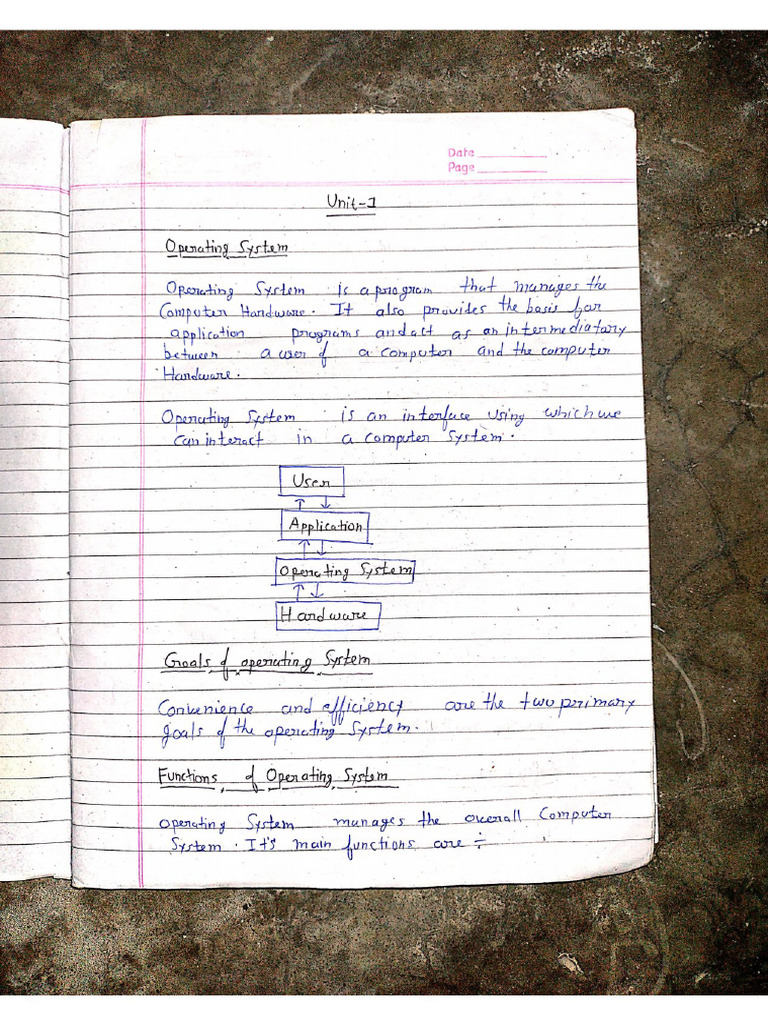 Date
Page
Unit-1
Operating System
Operating System is a program that manages the
Computer Hardware. It also provides the basis for
application programs and act as an intermediatory
between a user of a computer and the computer
Hardware.
Operating System is an interface using which we
can interact in a computer System.
User
↑ ↓
Application
↑ ↓
Operating System
↑ ↓
Hardware
Goals of operating System
Convenience and efficiency are the two primary
goals of the operating System.
Functions of Operating System
Operating System manages the overall Computer
System. It's main functions are ÷